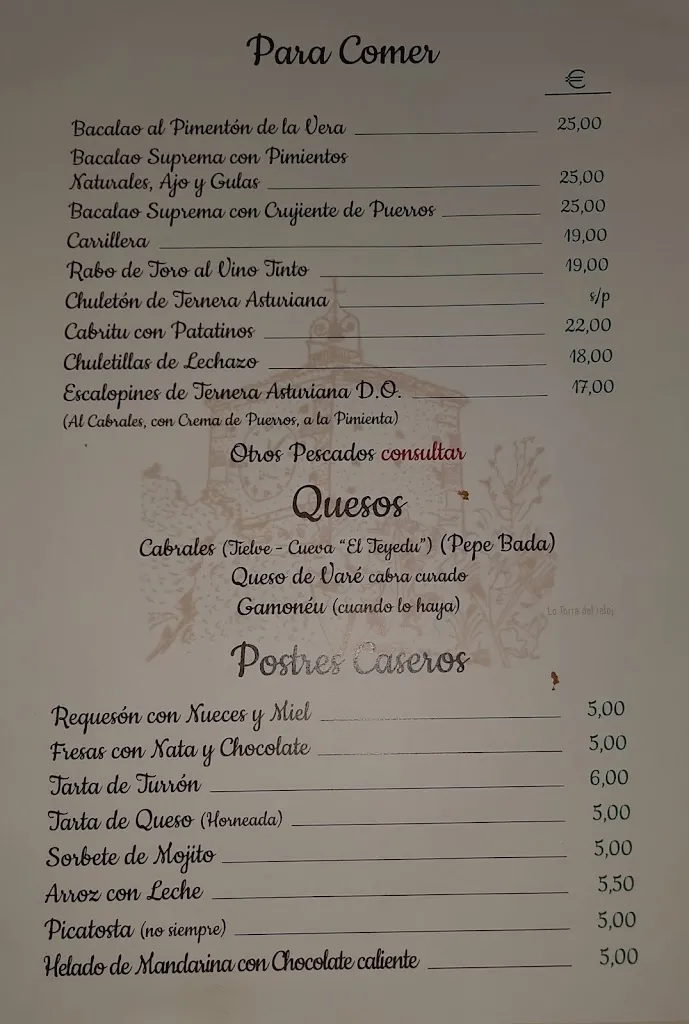 Para Comer
€
Bacalao al Pimentón de la Vera 25,00
Bacalao Suprema con Pimientos
Naturales, Ajo y Gulas 25,00
Bacalao Suprema con Crujiente de Puerros 25,00
Carrillera 19,00
Rabo de Toro al Vino Tinto 19,00
Chuletón de Ternera Asturiana s/p
Cabritu con Patatinos 22,00
Chuletillas de Lechazo 18,00
Escalopines de Ternera Asturiana D.O. 17,00
(Al Cabrales, con Crema de Puerros, a la Pimienta)
Otros Pescados consultar
Quesos
Cabrales (Tielve - Cueva "El Teyedu") (Pepe Bada)
Queso de Varé cabra curado
Gamonéu (cuando lo haya)
La Torre del reloj
Postres Caseros
Requesón con Nueces y Miel 5,00
Fresas con Nata y Chocolate 5,00
Tarta de Turrón 6,00
Tarta de Queso (Horneada) 5,00
Sorbete de Mojito 5,00
Arroz con Leche 5,50
Picatosta (no siempre) 5,00
Helado de Mandarina con Chocolate caliente 5,00